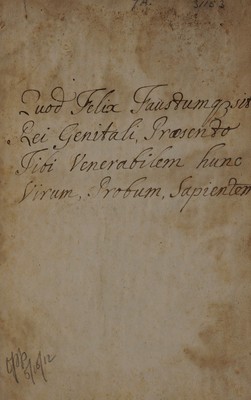 Quod Felix Faustumqȝ sit
Rei Genitali, Præsento
Tibi Venerabilem hunc
Virum, Probum, Sapientem